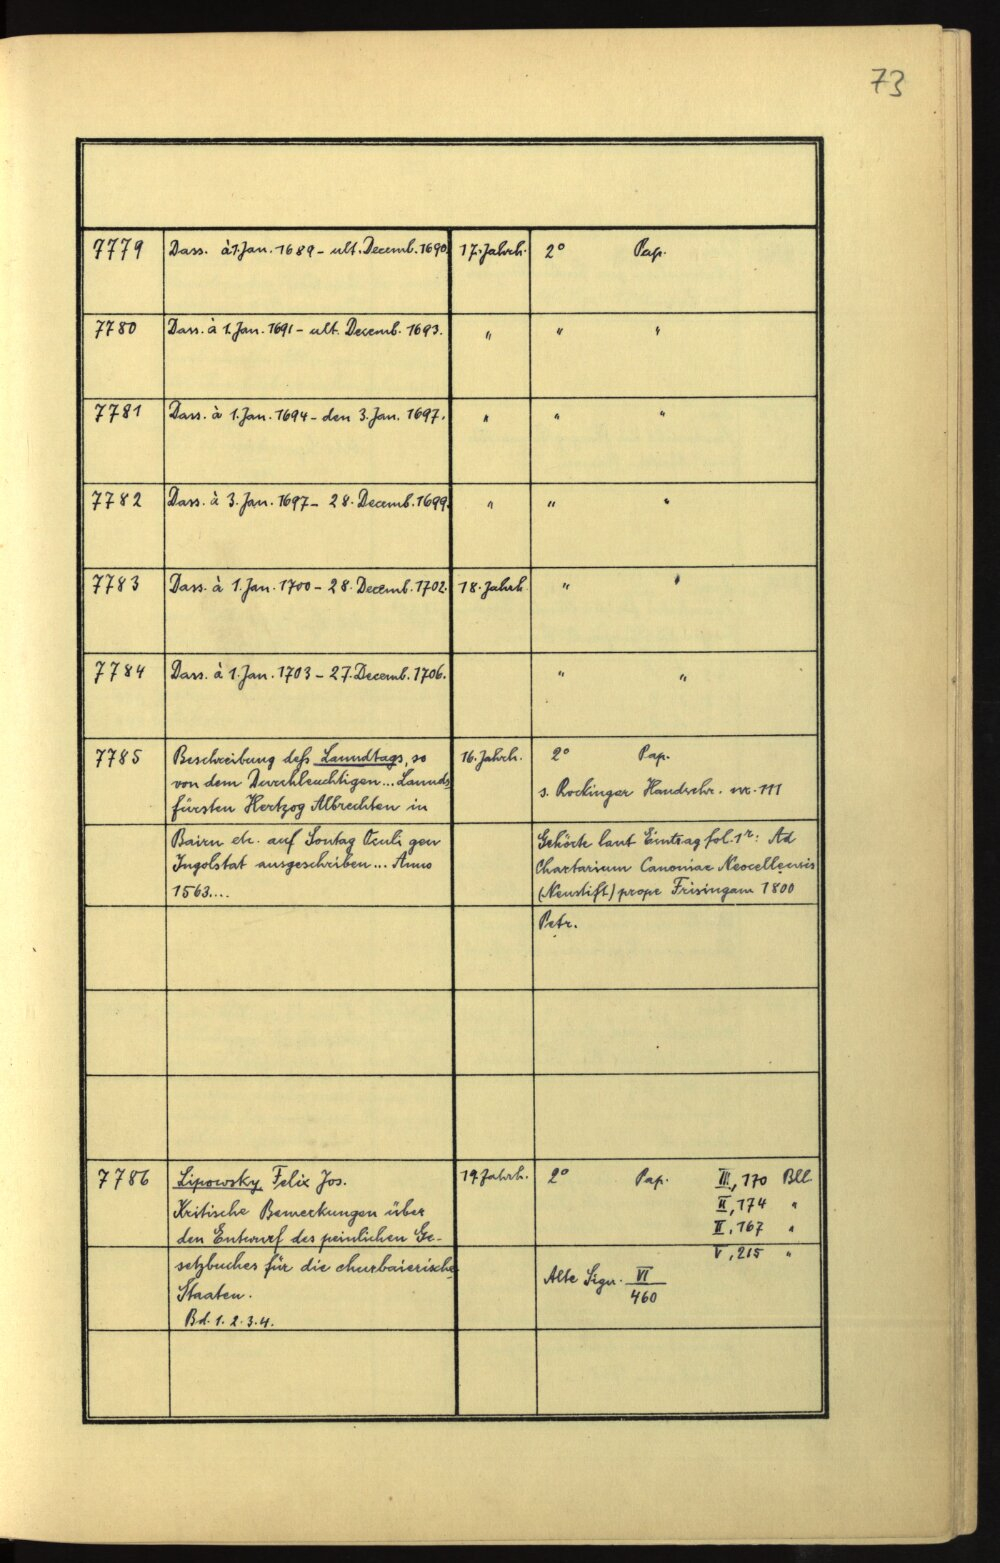 73
7779 Dass. à 1. Jan. 1689 - ult. Decemb. 1690. 17. Jahrh. 2° Pap.
7780 Dass. à 1. Jan. 1691 - ult. Decemb. 1693. " " "
7781 Dass. à 1. Jan. 1694 - den 3. Jan. 1697. " " "
7782 Dass. à 3. Jan. 1697 - 28. Decemb. 1699. " " "
7783 Dass. à 1. Jan. 1700 - 28. Decemb. 1702. 18. Jahrh. " "
7784 Dass. à 1. Jan. 1703 - 27. Decemb. 1706. " "
7785 Beschreibung dess Lanndtags, so 16. Jahrh. 2° Pap.
von dem Durchleuchtigen... Lannds- s. Rockinger Handschr. nr. 111
fürsten Hertzog Albrechten in
Bairn etc. auf Sontag Oculi gen Gehörte laut Eintrag fol. 1r: Ad
Ingolstat ausgeschriben... Anno Chartarium Canoniae Neocellensis
1563.... (Neustift) prope Frisingam 1800
Petr.
7786 Lipowsky Felix Jos. 19. Jahrh. 2° Pap. III, 170 Bll.
Kritische Bemerkungen über II, 174 "
den Entwurf des peinlichen Ge- II, 167 "
V, 215 "
setzbuches für die churbaierische
Staaten. Alte Sign. VI/460
Bd. 1. 2. 3. 4.